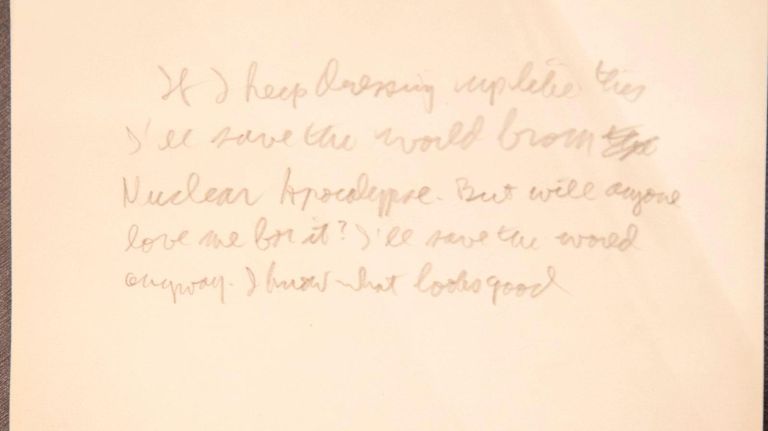 If I keep Dressing up like this
I'll save the world from
Nuclear Apocalypse. But will anyone
love me for it? I'll save the world
anyway. I know what looks good